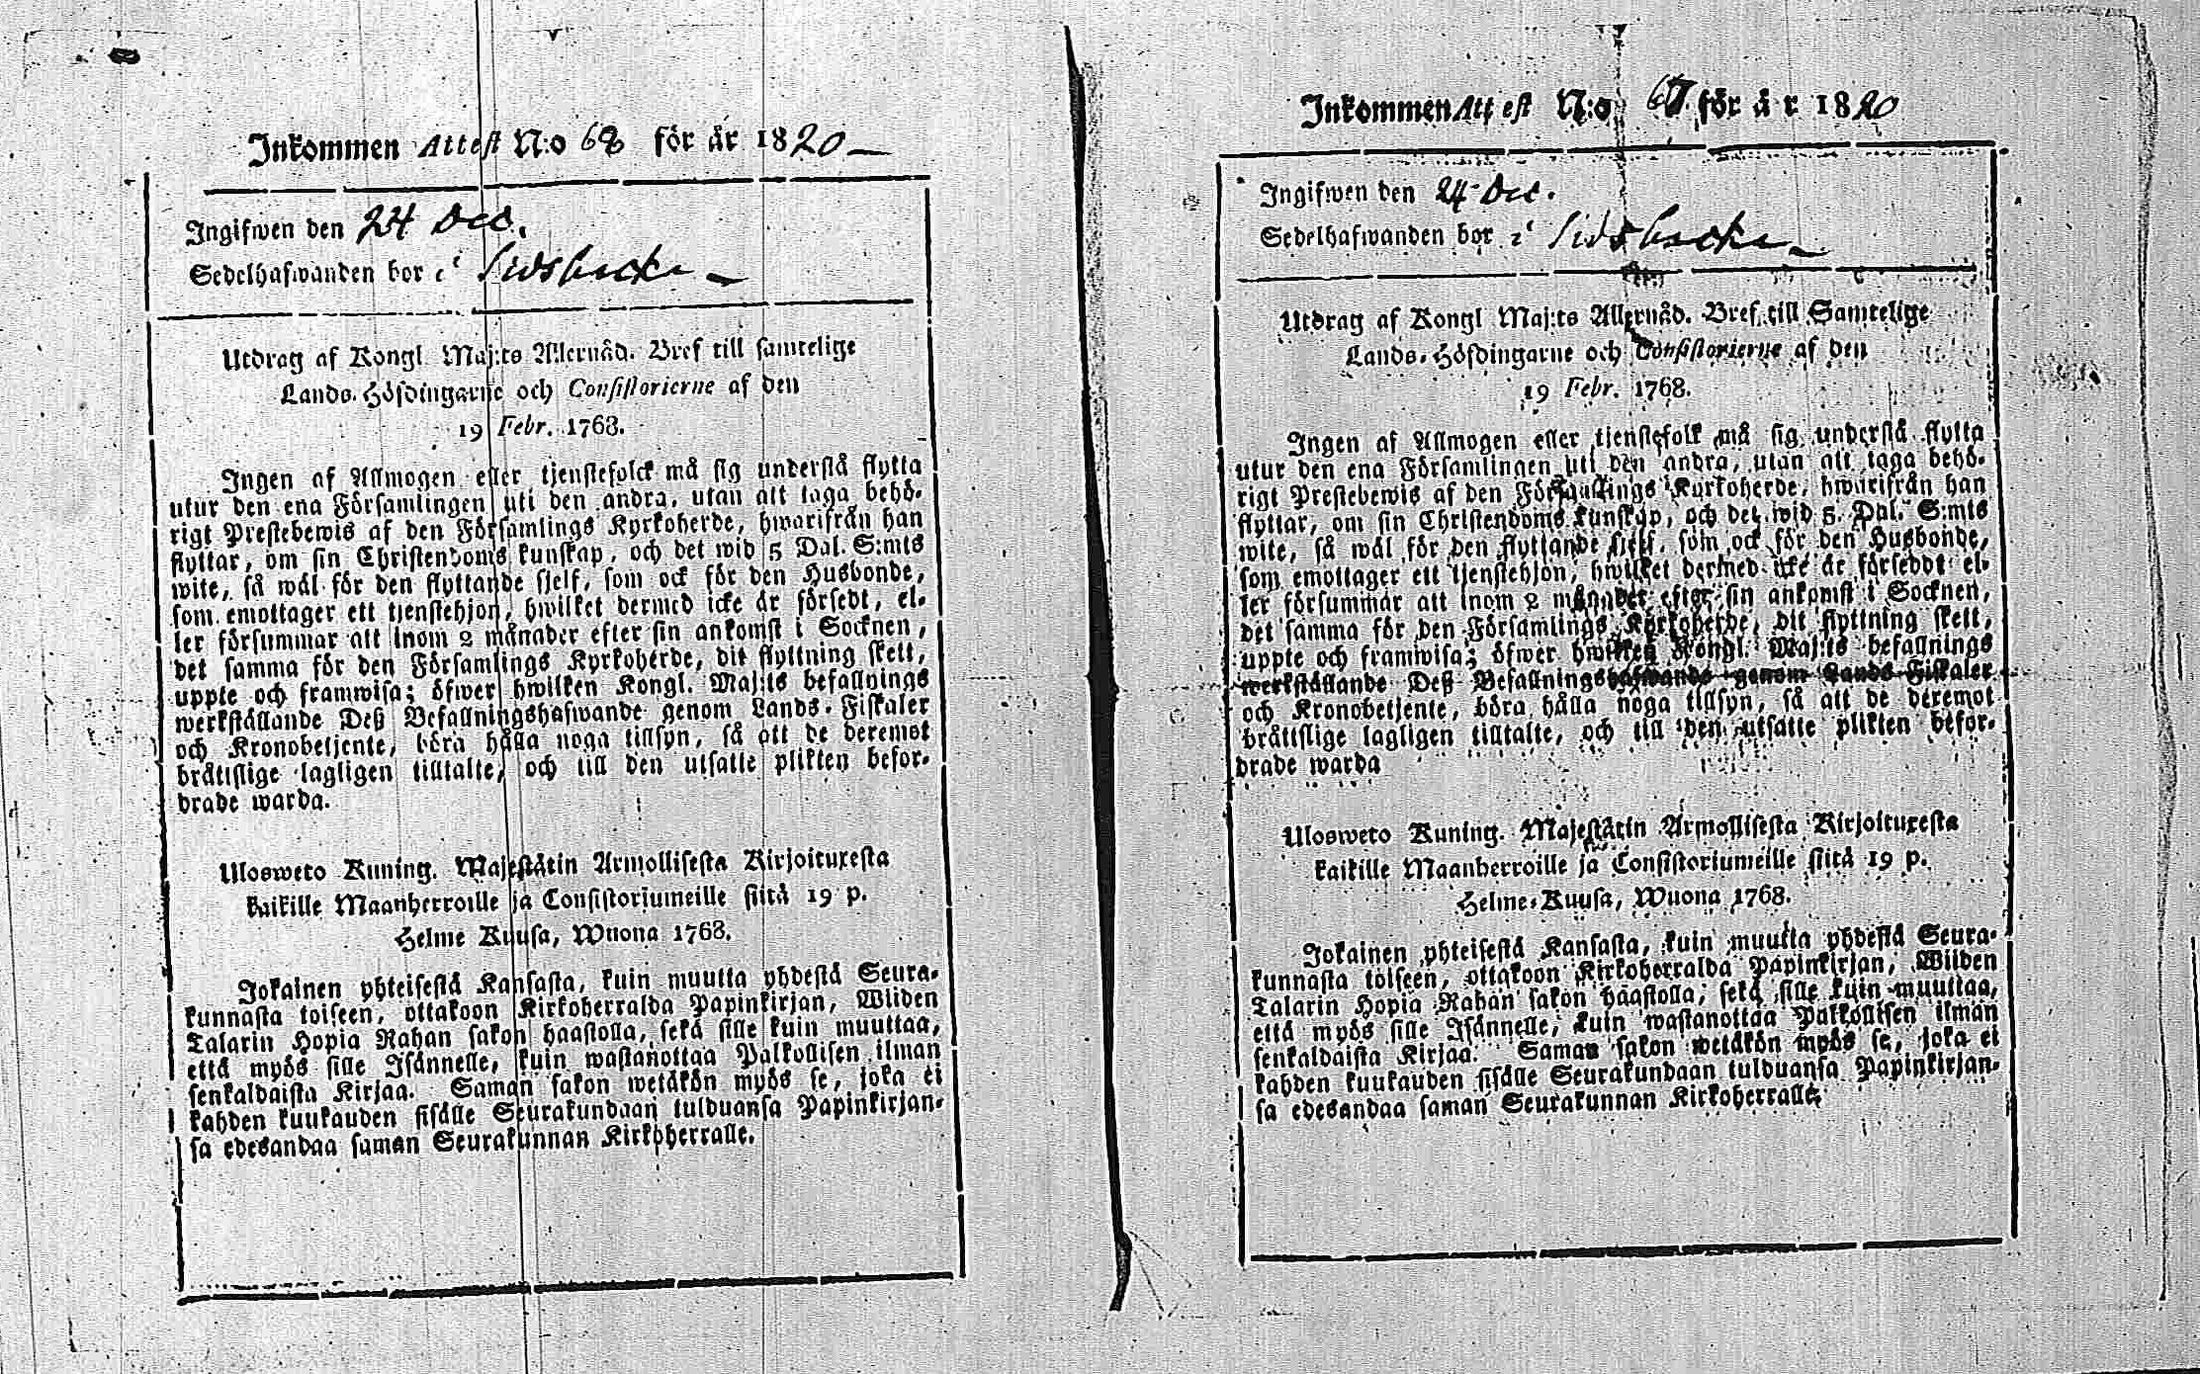 Inkommen Attest N:o 68 för år 1820
Ingifwen den 24 Dec.
Sedelhafwanden bor i Sidsbacka
Utdrag af Kongl. Maj:ts Allernåd. Bref till samtelige
Lands-Höfdingarne och Consistorierne af den
19 Febr. 1768.
Ingen af Allmogen eller tjenstefolck må sig understå flytta
utur den ena Församlingen uti den andra, utan att taga behö-
rigt Prestebewis af den Församlings Kyrkoherde, hwarifrån han
flyttar, om sin Christendoms kunskap, och det wid 5 Dal. S:mts
wite, så wäl för den flyttande sjelf, som ock för den Husbonde,
som emottager ett tjenstehjon, hwilket dermed icke är försedt, el-
ler försummar att inom 2 månader efter sin ankomst i Socknen,
det samma för den Församlings Kyrkoherde, dit flyttning skett,
uppte och framwisa; öfwer hwilken Kongl. Maj:ts befallnings
werkställande Deß Befallningshafwande genom Lands-Fiskaler
och Kronobetjente, böra hålla noga tillsyn, så att de deremot
bråttslige lagligen tilltalte, och till den utsatte plikten befor-
drade warda.
Ulosweto Kuning. Majestätin Armollisesta Kirjoituxesta
kaikille Maanherroille ja Consistoriumeille siitä 19 p.
Helme Kuusa, Wuona 1768.
Jokainen yhteisestä Kansasta, kuin muutta yhdestä Seura-
kunnasta toiseen, ottakoon Kirkoherralda Papinkirjan, Wiiden
Talarin Hopia Rahan sakon haastolla, sekä sille kuin muuttaa,
että myös sille Isännelle, kuin wastanottaa Palkollisen ilman
senkaldaista Kirjaa. Saman sakon wetäkön myös se, joka ei
kahden kuukauden sisälle Seurakundaan tulduansa Papinkirjan-
sa edesandaa saman Seurakunnan Kirkoherralle.
Inkommen Attest N:o 67 för år 1820
Ingifwen den 24 Dec.
Sedelhafwanden bor i Sidsbacka
Utdrag af Kongl Maj:ts Allernåd. Bref till Samtelige
Lands-Höfdingarne och Consistorierne af den
19 Febr. 1768.
Ingen af Allmogen eller tjenstefolk må sig understå flytta
utur den ena Församlingen uti den andra, utan att taga behö-
rigt Prestebewis af den Församlings Kyrkoherde, hwarifrån han
flyttar, om sin Christendoms kunskap, och det wid 5. Dal. S:mts
wite, så wäl för den flyttande sjelf, som ock för den Husbonde,
som emottager ett tjenstehjon, hwilket dermed icke är försedt el-
ler försummar att inom 2 månader efter sin ankomst i Socknen,
det samma för den Församlings Kyrkoherde, dit flyttning skett,
uppte och framwisa; öfwer hwilken Kongl. Maj:ts befallnings
werkställande Deß Befallningshafwande genom Lands-Fiskaler
och Kronobetjente, böra hålla noga tillsyn, så att de deremot
bråttslige lagligen tilltalte, och till den utsatte plikten befor-
drade warda
Ulosweto Kuning. Majestätin Armollisesta Kirjoituxesta
kaikille Maanherroille ja Consistoriumeille siitä 19 p.
Helme-Kuusa, Wuona 1768.
Jokainen yhteisestä Kansasta, kuin muutta yhdestä Seura-
kunnasta toiseen, ottakoon Kirkoherralda Papinkirjan, Wiiden
Talarin Hopia Rahan sakon haastolla, sekä sille kuin muuttaa,
että myös sille Isännelle, kuin wastanottaa Palkollisen ilman
senkaldaista Kirjaa. Saman sakon wetäkön myös se, joka ei
kahden kuukauden sisälle Seurakundaan tulduansa Papinkirjan-
sa edesandaa saman Seurakunnan Kirkoherralle